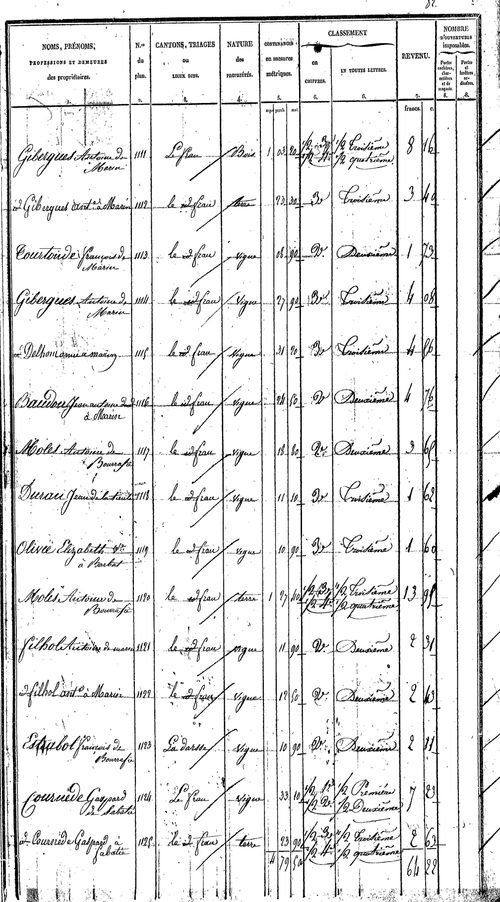 82.
NOMS, PRÉNOMS, PROFESSIONS ET DEMEURES des propriétaires. | N.os du plan. | CANTONS, TRIAGES ou LIEUX DITS. | NATURE des | CONTENANCES en mesures métriques. | CLASSEMENT en CHIFFRES. | EN TOUTES LETTRES. | REVENU. | NOMBRE D'OUVERTURES imposables.
francs. c.
Gibergues Antoine de Marin 1111 Le frau Bois 1 03 20 1/2 3e 1/2 4e 1/2 Troisième 1/2 quatrième 8 16
Gibergues ant.e à Marin 1112 le frau terre 23 30 3e Troisième 3 40
Courtonde françois de Marin 1113 le frau vigne 08 90 2e Deuxième 1 73
Gibergues Antoine de Marin 1114 le frau vigne 27 90 3e Troisième 4 08
Delhom à marin 1115 le frau vigne 31 20 3e Troisième 4 56
Baudou Jean antoine à Marin 1116 le frau vigne 24 50 2e Deuxième 4 76
Moles Antoine de Bourrasse 1117 le frau vigne 18 80 2e Deuxième 3 65
Duran Jean 1118 le frau vigne 11 10 3e Troisième 1 62
Olivié Elizabeth Ve à Barbes 1119 le frau vigne 10 90 3e Troisième 1 60
Moles Antoine de Bourrasse 1120 le frau terre 1 27 1/2 3e 1/2 4e 1/2 Troisième 1/2 quatrième 13 98
filhol Antoine de marin 1121 le frau vigne 11 90 2e Deuxième 2 31
filhol ant.e à Marin 1122 le frau vigne 12 50 2e Deuxième 2 43
Estrabol françois de Bourrasse 1123 La darsse vigne 10 90 2e Deuxième 2 11
Cournède Gaspard de Sabatié 1124 Le frau vigne 33 10 1/2 1e 1/2 2e 1/2 Première 1/2 Deuxième 7 23
Cournède Gaspard à Sabatié 1125 le frau terre 23 90 1/2 3e 1/2 4e 1/2 Troisième 1/2 quatrième 2 63
4 79 50 64 22